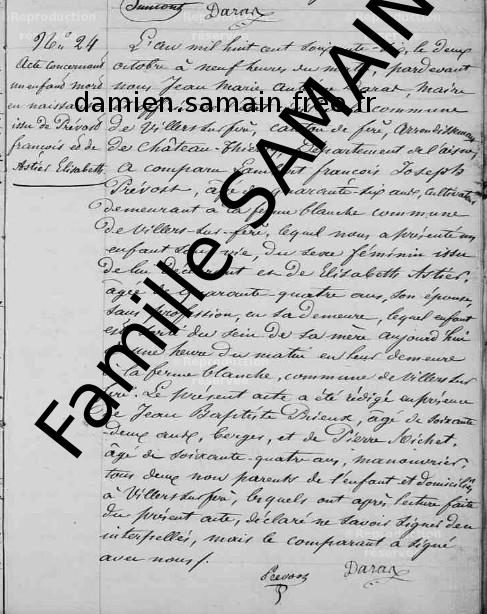 Dumont Daras
N° 24
Acte concernant
un enfant mort
en naissant
issu de Prévost
françois et de
Astier Elisabeth
L'an mil huit cent soixante-dix, le deux
octobre à neuf heures du matin, pardevant
nous Jean Marie Daras, maire
commune
de Villers sur fère, canton de fère, Arrondissement
de Château-Thierry, Département de l'aisne,
A comparu françois Joseph
Prévost, âgé de quarante-six ans, Cultivateur
demeurant à la ferme blanche commune
de Villers-sur-fère, lequel nous a présenté un
enfant sans vie, du sexe féminin issu
de lui déclarant et de Elisabeth Astier,
âgée de quarante-quatre ans, son épouse,
sans profession, en sa demeure, lequel enfant
est sorti du sein de sa mère aujourd'hui
à une heure du matin en leur demeure
à la ferme blanche, commune de Villers sur
fère. Le présent acte a été rédigé en présence
de Jean Baptiste Brieux, âgé de soixante
deux ans, berger, et de Pierre Richet,
âgé de soixante-quatre ans, manouvrier,
tous deux non parents de l'enfant et domiciliés
à Villers sur fère, lesquels ont après lecture faite
du présent acte, déclaré ne savoir signer de ce
interpellés, mais le comparant a signé
avec nous.
Prévost Daras
damien.samain.free.fr
Famille SAMAIN
Reproduction
réservée